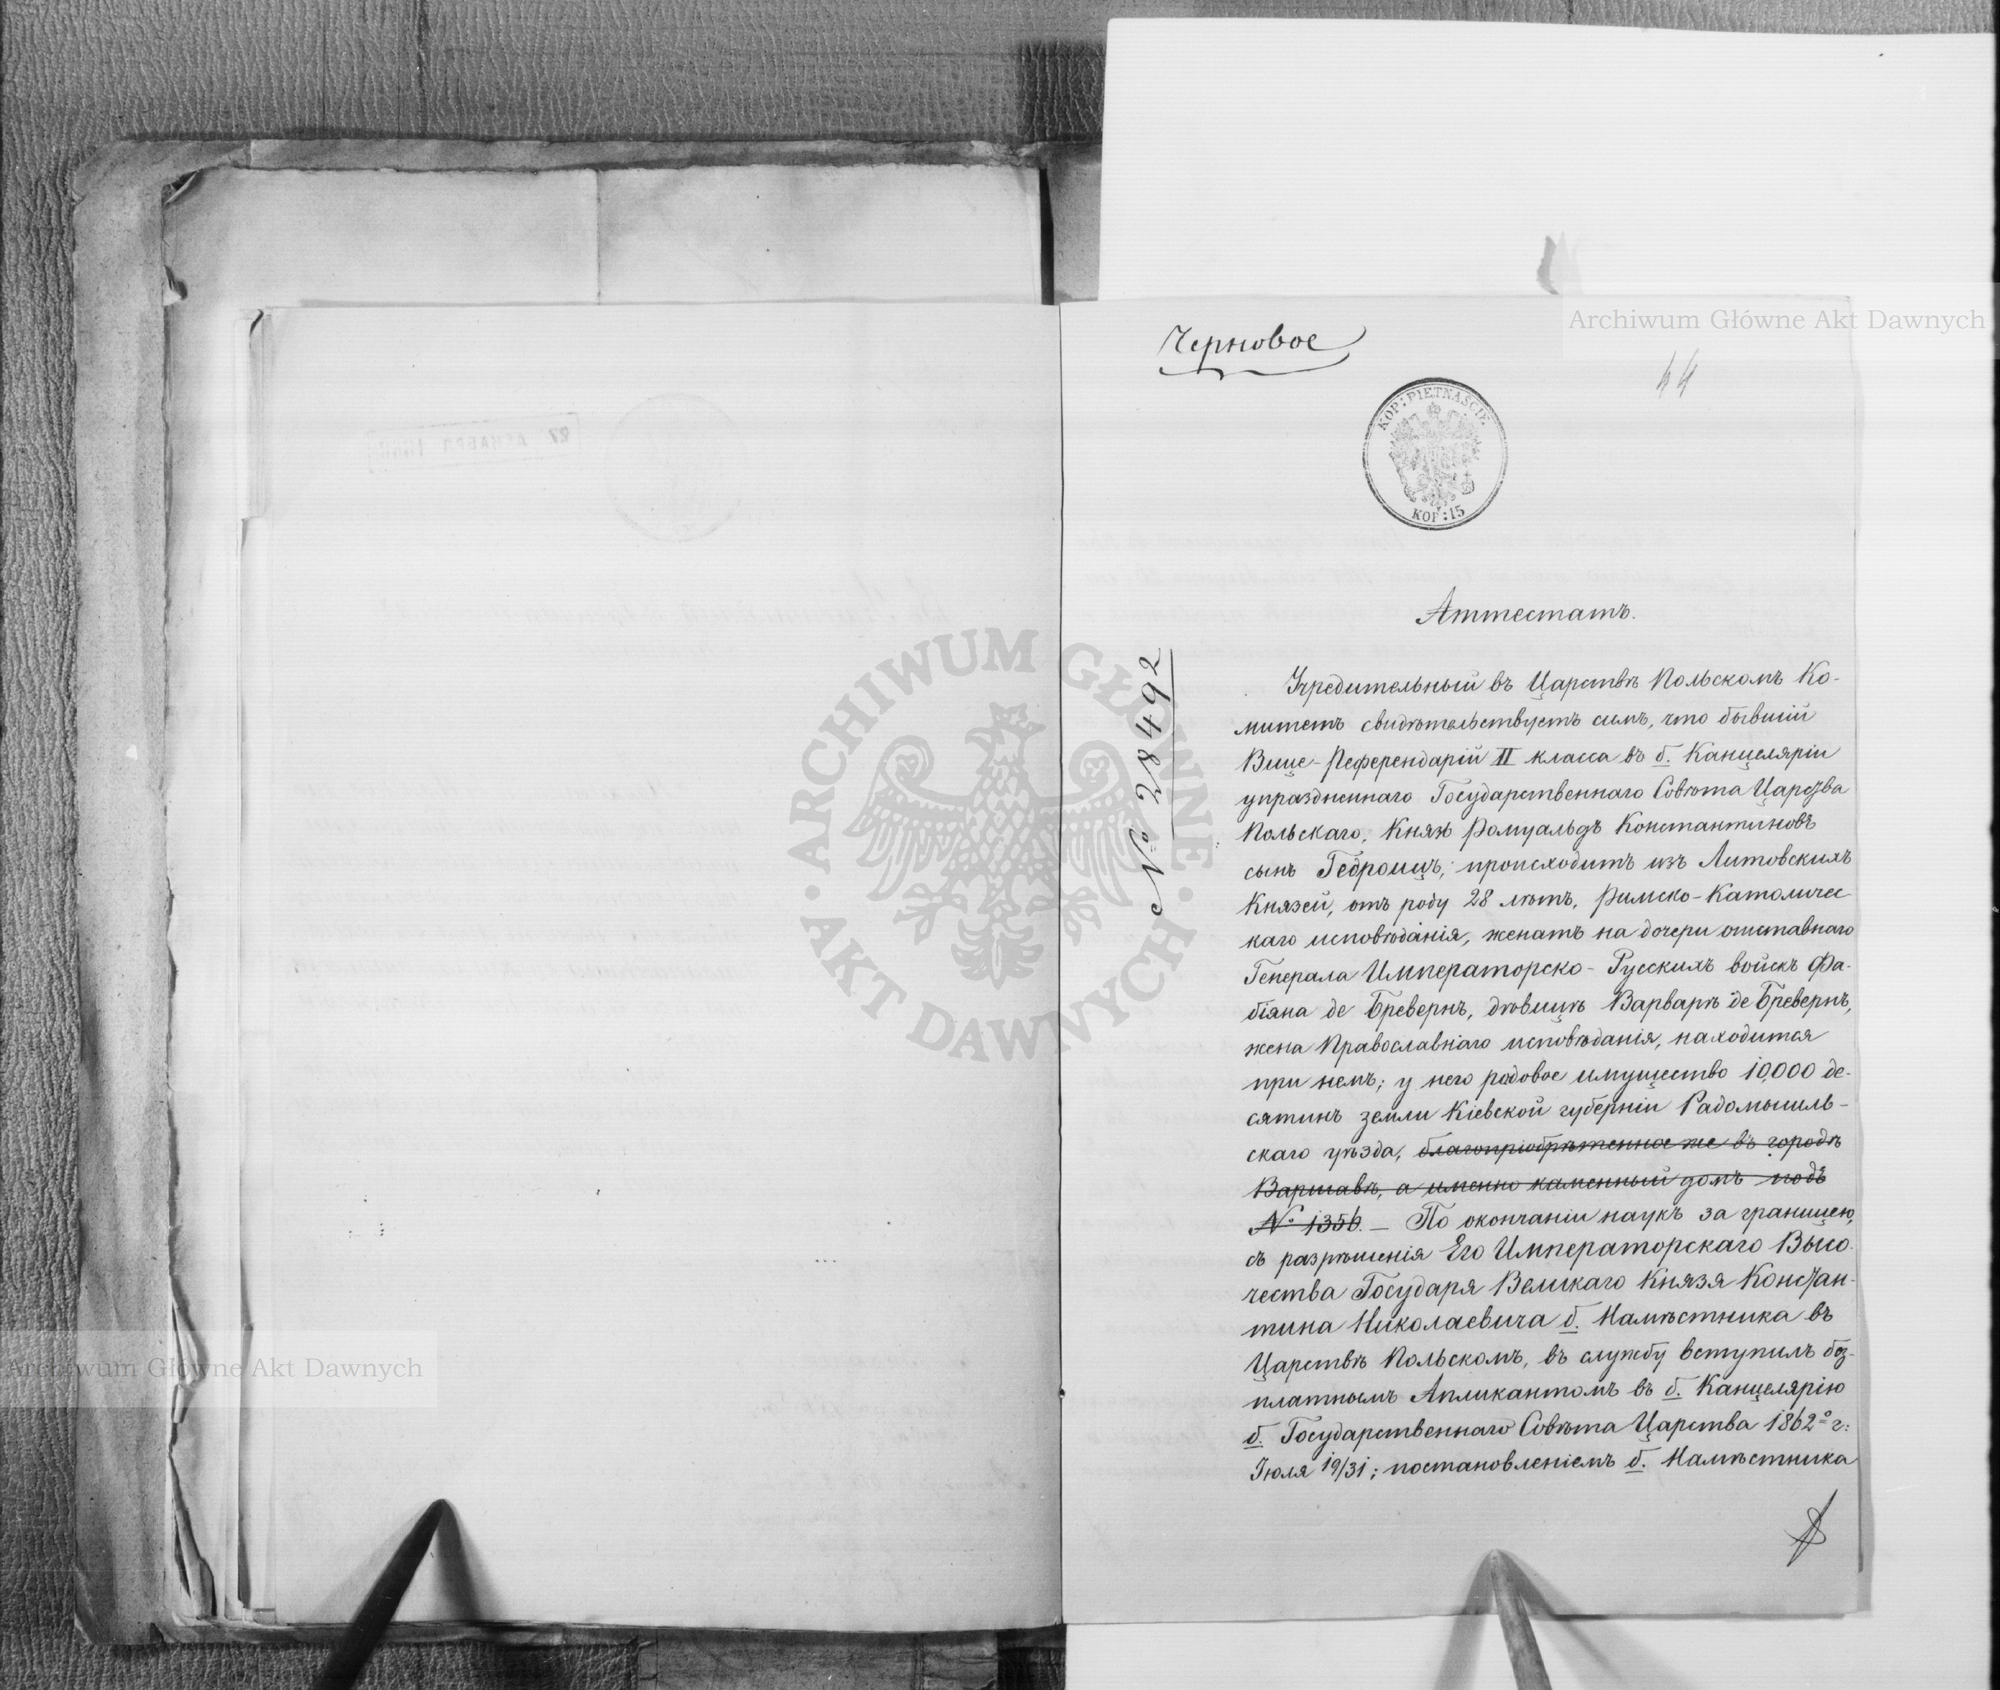 Черновое
Archiwum Główne Akt Dawnych
44
KOP: PIĘTNAŚCIE
KOP: 15
№ 28492
Аттестатъ.
Учредительный въ Царствѣ Польскомъ Ко-
митетъ свидѣтельствуетъ симъ, что бывшій
Вице-Референдарій II класса въ б. Канцеляріи
упраздненнаго Государственнаго Совѣта Царства
Польскаго, Князь Ромуальдъ Константиновъ
сынъ Гедроицъ; происходитъ изъ Литовскихъ
Князей, отъ роду 28 лѣтъ, Римско-Католичес
каго исповѣданія, женатъ на дочери отставнаго
Генерала Императорско-Русскихъ войскъ Фа-
біяна де Бревернъ, дѣвицѣ Варварѣ де Бревернъ,
жена Православнаго исповѣданія, находится
при немъ; у него родовое имущество 10,000 де-
сятинъ земли Кіевской губерніи Радомысль-
скаго уѣзда, благопріобрѣтенное же въ городѣ
Варшавѣ, а именно каменный домъ подъ
№ 1356. — По окончаніи наукъ за границею,
съ разрѣшенія Его Императорскаго Высо-
чества Государя Великаго Князя Констан-
тина Николаевича б. Намѣстника въ
Царствѣ Польскомъ, въ службу вступилъ без-
платнымъ Апликантомъ въ б. Канцелярію
б. Государственнаго Совѣта Царства 1862º г:
Іюля 19/31; постановленіемъ б. Намѣстника
ARCHIWUM GŁÓWNE
AKT DAWNYCH
Archiwum Główne Akt Dawnych